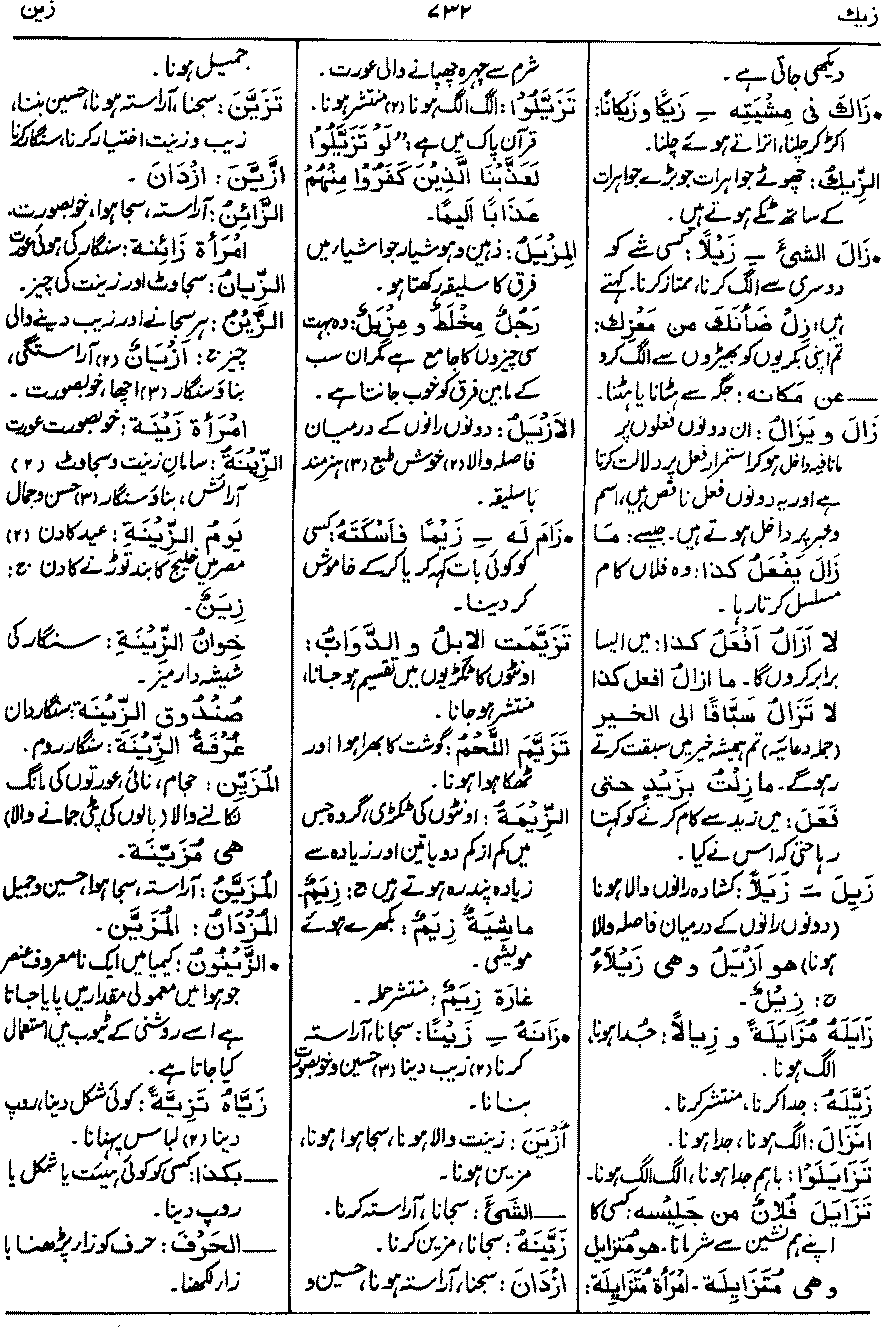 زيك
٧٣٢
زين
دیکھی جاتی ہے۔
• زَاكَ فى مِشْيَتِه ـِ زَيْكًا وزَيَكَانًا:
اکڑ کر چلنا، اتراتے ہوئے چلنا۔
الزِّيكُ: چھوٹے جواہرات جو بڑے جواہرات
کے ساتھ ٹکے ہوتے ہیں۔
• زَالَ الشئَ ـِ زَيْلًا: کسی شے کو
دوسری سے الگ کرنا، ممتاز کرنا۔ کہتے
ہیں: زِلْ ضَأْنَكَ من مَعْزِكَ:
تم اپنی بکریوں کو بھیڑوں سے الگ کرو
— عن مَكَانه: جگہ سے ہٹانا یا ہٹنا۔
زَالَ و يَزَالُ: ان دونوں فعلوں پر
ما نافیہ داخل ہو کر استمرار فعل پر دلالت کرتا
ہے اور یہ دونوں فعل ناقص ہیں، اسم
وخبر پر داخل ہوتے ہیں۔ جیسے: مَا
زَالَ يَفْعَلُ كذا: وہ فلاں کام
مسلسل کرتا رہا۔
لا اَزَالُ اَفْعَلُ كذا: میں ایسا
برابر کروں گا۔ ما ازالُ افعل كذا
لا تَزَالُ سَبَّاقًا الى الخير
(جملہ دعائیہ) تم ہمیشہ خیر میں سبقت کرتے
رہوگے۔ مازِلْتُ بزَيْدٍ حتى
فَعَلَ: میں زید سے کام کرنے کو کہتا
رہا حتیٰ کہ اس نے کیا۔
زَيِلَ ـَ زَيَلًا: کشادہ رانوں والا ہونا
(دونوں رانوں کے درمیان فاصلہ والا
ہونا) هو اَزْيَلُ وهى زَيْلَاءُ
ج: زِيْلٌ۔
زَايَلَهُ مُزَايَلَةً و زِيالًا: جُدا ہونا،
الگ ہونا۔
زَيَّلَهُ: جدا کرنا، منتشر کرنا۔
انْزَالَ: الگ ہونا، جدا ہونا۔
تَزَايَلُوا: باہم جدا ہونا، الگ الگ ہونا۔
تَزَايَلَ فُلَانٌ من جَلِيْسِه: کسی کا
اپنے ہم نشین سے شرمانا۔ هو مُتَزايِل
وهى مُتَزَايِلَة۔ امْرأة مُتَزَايِلَة:
شرم سے چہرہ چھپانے والی عورت۔
تَزَيَّلُوا: الگ الگ ہونا (۲) منتشر ہونا۔
قرآن پاک میں ہے: "لَوْ تَزَيَّلُوا
لَعَذَّبْنَا الَّذِيْنَ كَفَرُوا مِنْهُمْ
عَذَابًا اَلِيمًا۔
المِزْيَلُ: ذہین و ہوشیار جو اشیار میں
فرق کا سلیقہ رکھتا ہو۔
رَجُلٌ مِخْلَطٌ و مِزْيَلٌ: وہ بہت
سی چیزوں کا جامع ہے مگر ان سب
کے مابین فرق کو خوب جانتا ہے۔
الاَزْيَلُ: دونوں رانوں کے درمیان
فاصلہ والا (۲) خوش طبع (۳) ہنرمند
باسلیقہ۔
• زَامَ لَه ـِ زَيْمًا فاَسْكَتَهُ: کسی
کو کوئی بات کہہ کر یا کرکے خاموش
کر دینا۔
تَزَيَّمَت الابِلُ و الدَّوَابُّ:
اونٹوں کا ٹکڑیوں میں تقسیم ہوجانا،
منتشر ہوجانا۔
تَزَيَّمَ اللَّحْمُ: گوشت کا بھرا ہوا اور
ٹھکا ہوا ہونا۔
الزِّيْمَةُ: اونٹوں کی ٹکڑی، گروہ جس
میں کم از کم دو یا تین اور زیادہ سے
زیادہ پندرہ ہوتے ہیں ج: زِيَمٌ۔
ماشِيَةٌ زِيَمٌ: بکھرے ہوئے
مویشی۔
غارَة زِيَمٌ: منتشر حملہ۔
• زَانَهُ ـِ زَيْنًا: سجانا، آراستہ
کرنا (۲) زیب دینا (۳) حسین وخوبصورت
بنانا۔
اَزْيَنَ: زینت والا ہونا، سجا ہوا ہونا،
مزین ہونا۔
— الشَئَ: سجانا، آراستہ کرنا۔
زَيَّنَهُ: سجانا، مزین کرنا۔
ازْدَانَ: سجنا، آراستہ ہونا، حسین و
جمیل ہونا۔
تَزَيَّنَ: سجنا، آراستہ ہونا، حسین بننا،
زیب وزینت اختیار کرنا، سنگار کرنا
ازَّيَّنَ: ازْدَانَ۔
الزَّائِنُ: آراستہ، سجا ہوا، خوبصورت۔
امْرَأة زَائِنة: سنگار کی ہوئی عورت
الزِّيانُ: سجاوٹ اور زینت کی چیز۔
الزَّيْنُ: ہر سجانے اور زیب دینے والی
چیز ج: اَزْيَانٌ (۲) آراستگی،
بناؤ سنگار (۳) اچھا، خوبصورت۔
امْرأة زَيْنَة: خوبصورت عورت
الزِّيْنَةُ: سامان زینت و سجاوٹ (۲)
آرائش، بناؤ سنگار (۳) حسن وجمال
يَومُ الزِّيْنَةِ: عید کا دن (۲)
مصر میں خلیج کا بند توڑنے کا دن ج:
زِيَنٌ۔
خِوانُ الزِّيْنَةِ: سنگار کی
شیشہ دار میز۔
صُنْدُوق الزِّيْنَة: سنگاردان
غُرْفَةُ الزِّيْنَة: سنگار روم۔
المُزَيِّن: حجام، نائی، عورتوں کی مانگ
نکالنے والا (بالوں کی پٹی جمانے والا)
هى مُزَيِّنَة۔
المُزَيَّنُ: آراستہ، سجا ہوا، حسین وجمیل
المُزْدَانُ: المُزَيَّن۔
• الزَّيْنُونُ: کیمیا میں ایک نامعروف عنصر
جو ہوا میں معمولی مقدار میں پایا جاتا
ہے اسے روشنی کے ٹیوب میں استعمال
کیا جاتا ہے۔
زَيَّاهُ تَزِيَّةً: کوئی شکل دینا، روپ
دینا (۲) لباس پہنانا۔
— بكذا: کسی کو کوئی ہیئت یا شکل یا
روپ دینا۔
— الحَرْفَ: حرف کو زار پڑھنا یا
زار لکھنا۔